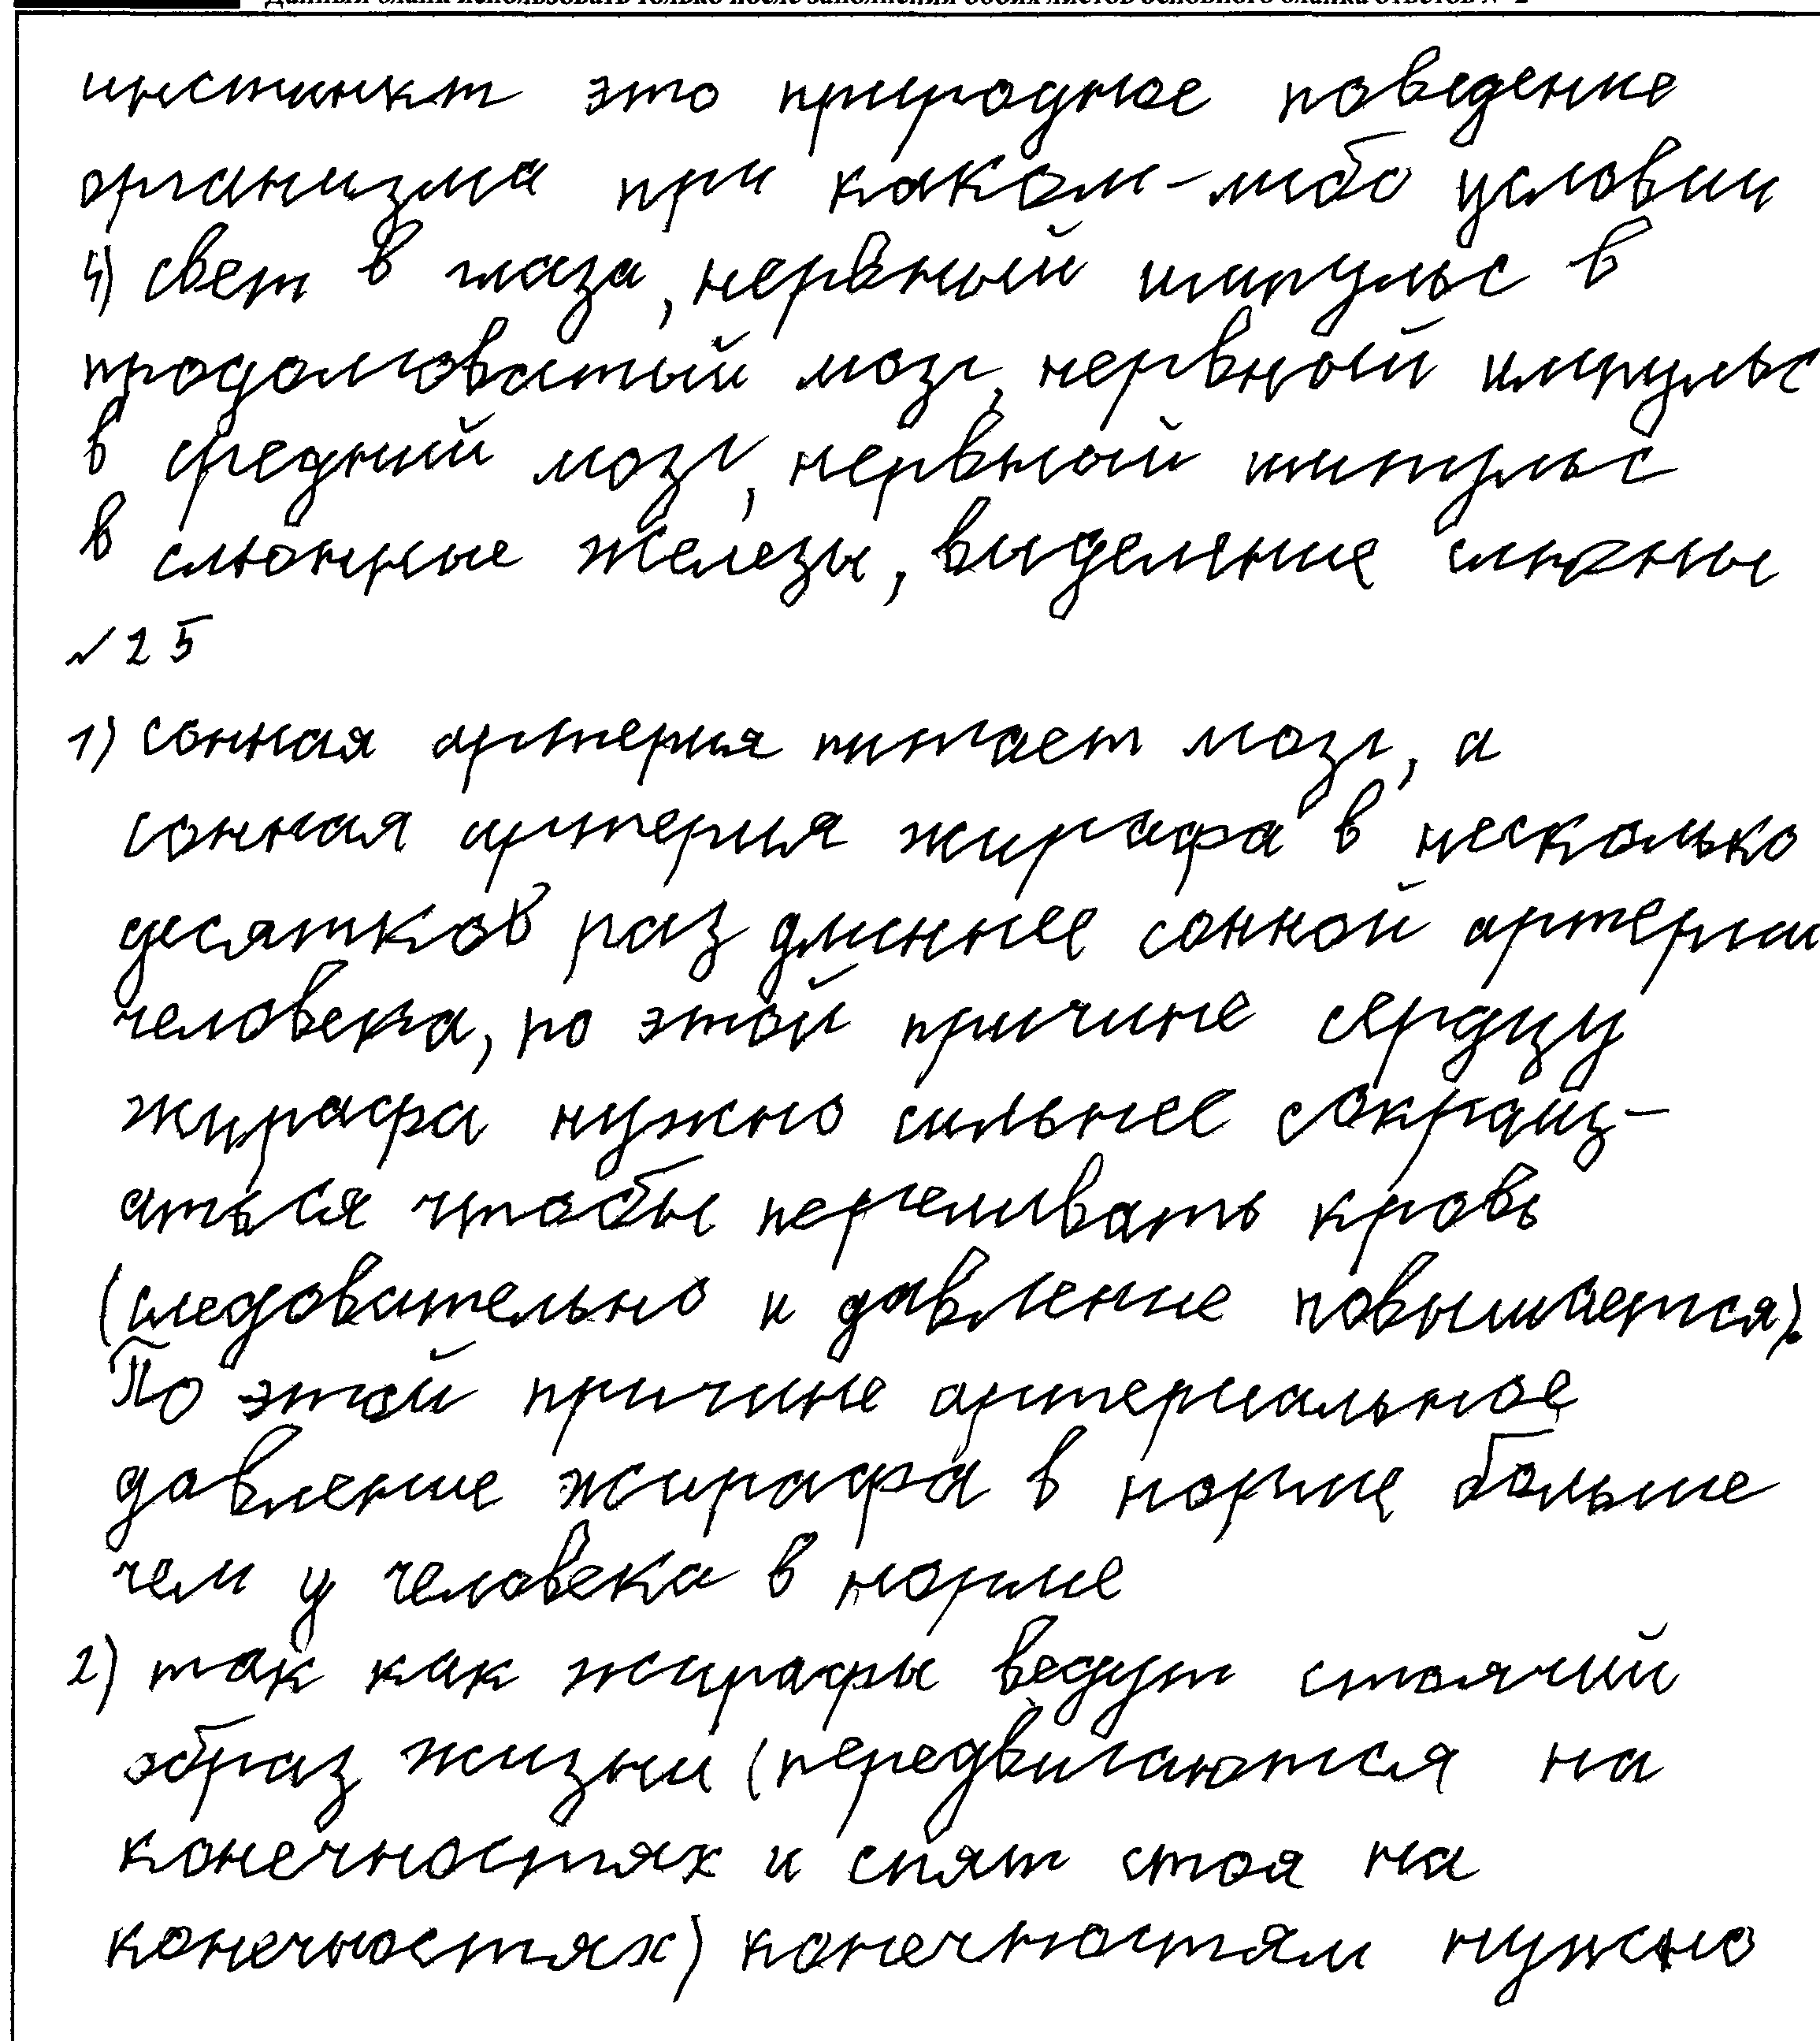 Данный бланк использовать только после заполнения обоих листов основного бланка ответов № 2
инстинкт это природное поведение
организма при каком-либо условии
4) свет в глаза, нервный импульс в
продолговатый мозг, нервный импульс
в средний мозг, нервный импульс
в слюнные железы, выделение слюны
№25
1) сонная артерия питает мозг, а
сонная артерия жирафа в несколько
десятков раз длиннее сонной артерии
человека, по этой причине сердцу
жирафа нужно сильнее сокращ-
аться чтобы переливать кровь
(следовательно и давление повышается).
По этой причине артериальное
давление жирафа в норме больше
чем у человека в норме
2) так как жирафы ведут стоячий
образ жизни (передвигаются на
конечностях и спят стоя на
конечностях) конечностям нужно